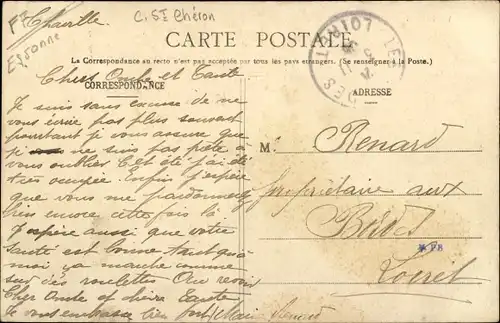 Chaville
C. St Chéron
Essonne
CARTE POSTALE
La Correspondance au recto n'est pas acceptée par tous les pays étrangers. (Se renseigner à la Poste.)
CORRESPONDANCE
ADRESSE
LOIRET
Chers Oncle et Tante
Je suis sans excuse de ne
vous écrire pas plus souvent
pourtant je vous assure que
je ne suis pas prête à
vous oublier Cet été j'ai été
très occupée. Enfin j'espère
que vous me pardonnerez
bien encore cette fois là
J'espère aussi que votre
santé est bonne tant qu'à
moi ça marche comme
sur des roulettes Au revoir
Cher Oncle et chère Tante
Je vous embrasse bien fort
M. Renard
propriétaire aux
Loiret
Renard